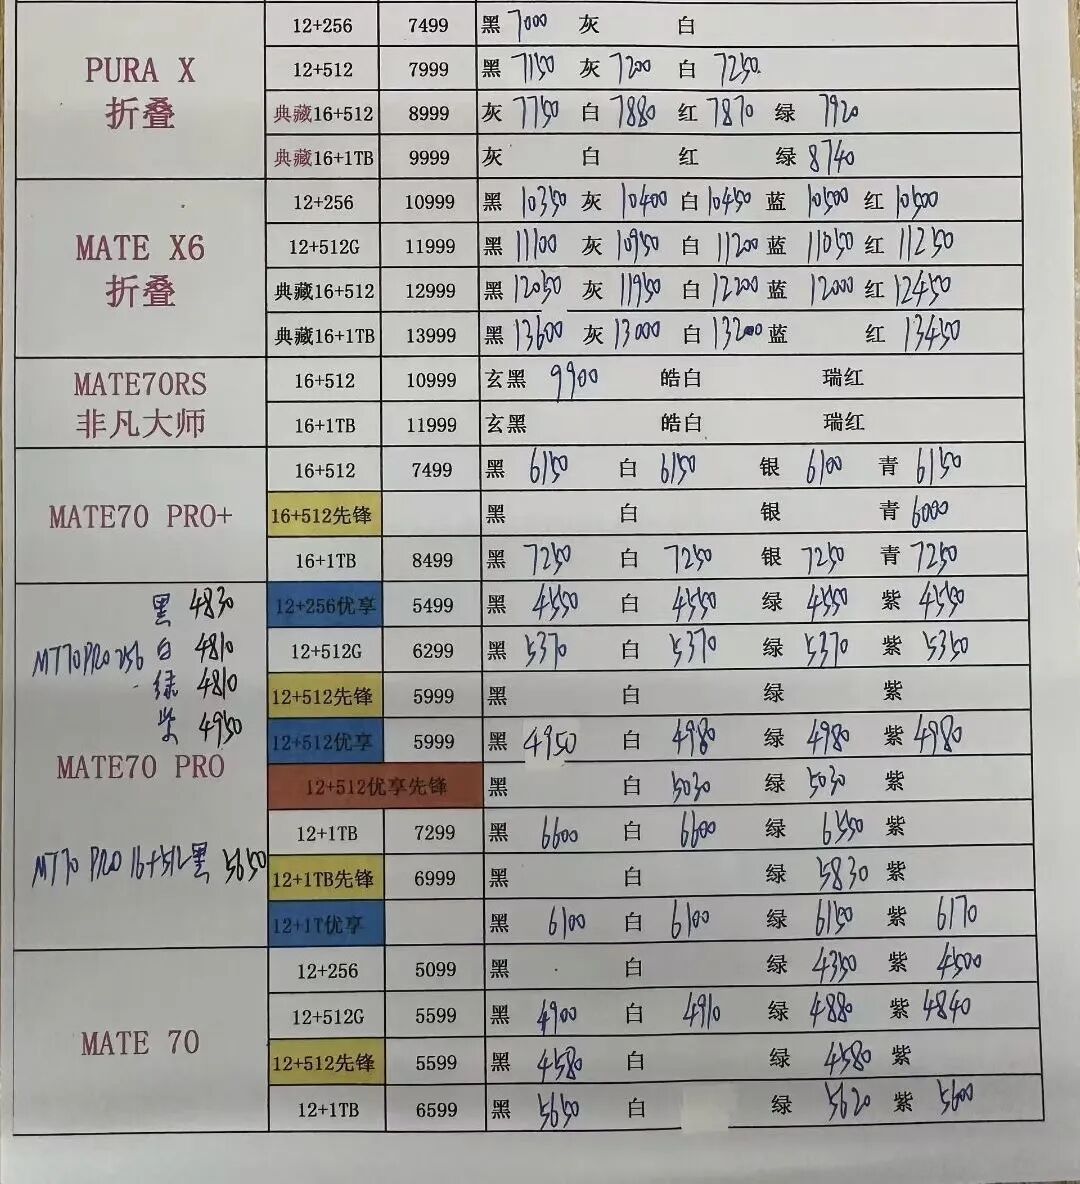 12+256 7499 黑 7000 灰 白
PURA X 12+512 7999 黑 7150 灰 7200 白 7250
折叠 典藏16+512 8999 灰 7750 白 7880 红 7870 绿 7920
典藏16+1TB 9999 灰 白 红 绿 8740
12+256 10999 黑 10350 灰 10400 白 10450 蓝 10500 红 10500
MATE X6 12+512G 11999 黑 11100 灰 10950 白 11200 蓝 11050 红 11250
折叠 典藏16+512 12999 黑 12050 灰 11950 白 12200 蓝 12000 红 12450
典藏16+1TB 13999 黑 13600 灰 13000 白 13200 蓝 红 13450
MATE70RS 16+512 10999 玄黑 9900 皓白 瑞红
非凡大师 16+1TB 11999 玄黑 皓白 瑞红
16+512 7499 黑 6150 白 6150 银 6100 青 6150
MATE70 PRO+ 16+512先锋 黑 白 银 青 6000
16+1TB 8499 黑 7250 白 7250 银 7250 青 7250
黑 4830 12+256优享 5499 黑 4550 白 4550 绿 4550 紫 4550
MT70PRO 256 白 4810 12+512G 6299 黑 5370 白 5370 绿 5370 紫 5350
绿 4810 12+512先锋 5999 黑 白 绿 紫
紫 4950 12+512优享 5999 黑 4950 白 4980 绿 4980 紫 4980
MATE70 PRO 12+512优享先锋 黑 白 5030 绿 5030 紫
12+1TB 7299 黑 6600 白 6600 绿 6550 紫
MT70 PRO 16+512黑 5650 12+1TB先锋 6999 黑 白 绿 5830 紫
12+1T优享 黑 6100 白 6100 绿 6150 紫 6170
12+256 5099 黑 白 绿 4350 紫 4500
12+512G 5599 黑 4900 白 4910 绿 4880 紫 4840
MATE 70 12+512先锋 5599 黑 4580 白 绿 4580 紫
12+1TB 6599 黑 5650 白 绿 5620 紫 5600